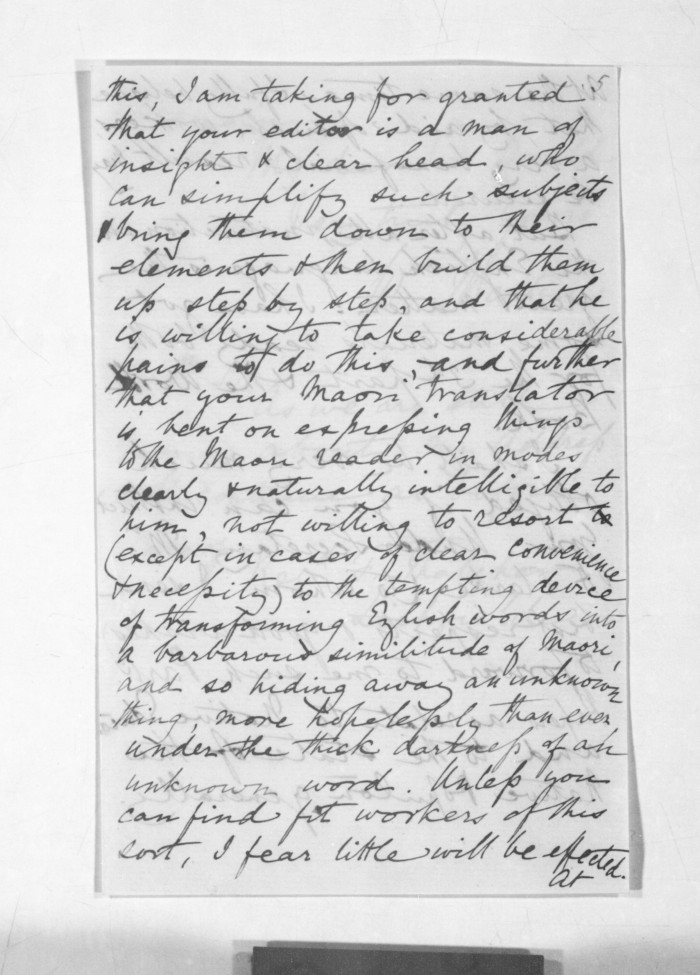 5
this, I am taking for granted
that your editor is a man of
insight & clear head, who
can simplify such subjects
bring them down to their
elements & then build them
up step by step, and that he
is willing to take considerable
pains to do this, and further
that your Maori translator
is bent on expressing things
to the Maori reader in modes
clearly & naturally intelligible to
him, not willing to resort to
(except in cases of clear convenience
& necessity) to the tempting device
of transforming English words into
a barbarous similitude of Maori,
and so hiding away an unknown
thing, more hopelessly than ever
under the thick darkness of an
unknown word. Unless you
can find fit workers of this
sort, I fear little will be effected.
At